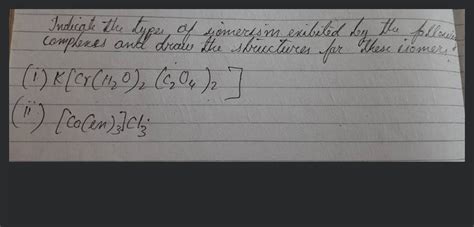 Indicate the types of isomerism exibited by the following
complexes and draw the structures for these isomers.
(i) K[Cr(H₂O)₂ (C₂O₄)₂]
(ii) [Co(en)₃]Cl₃